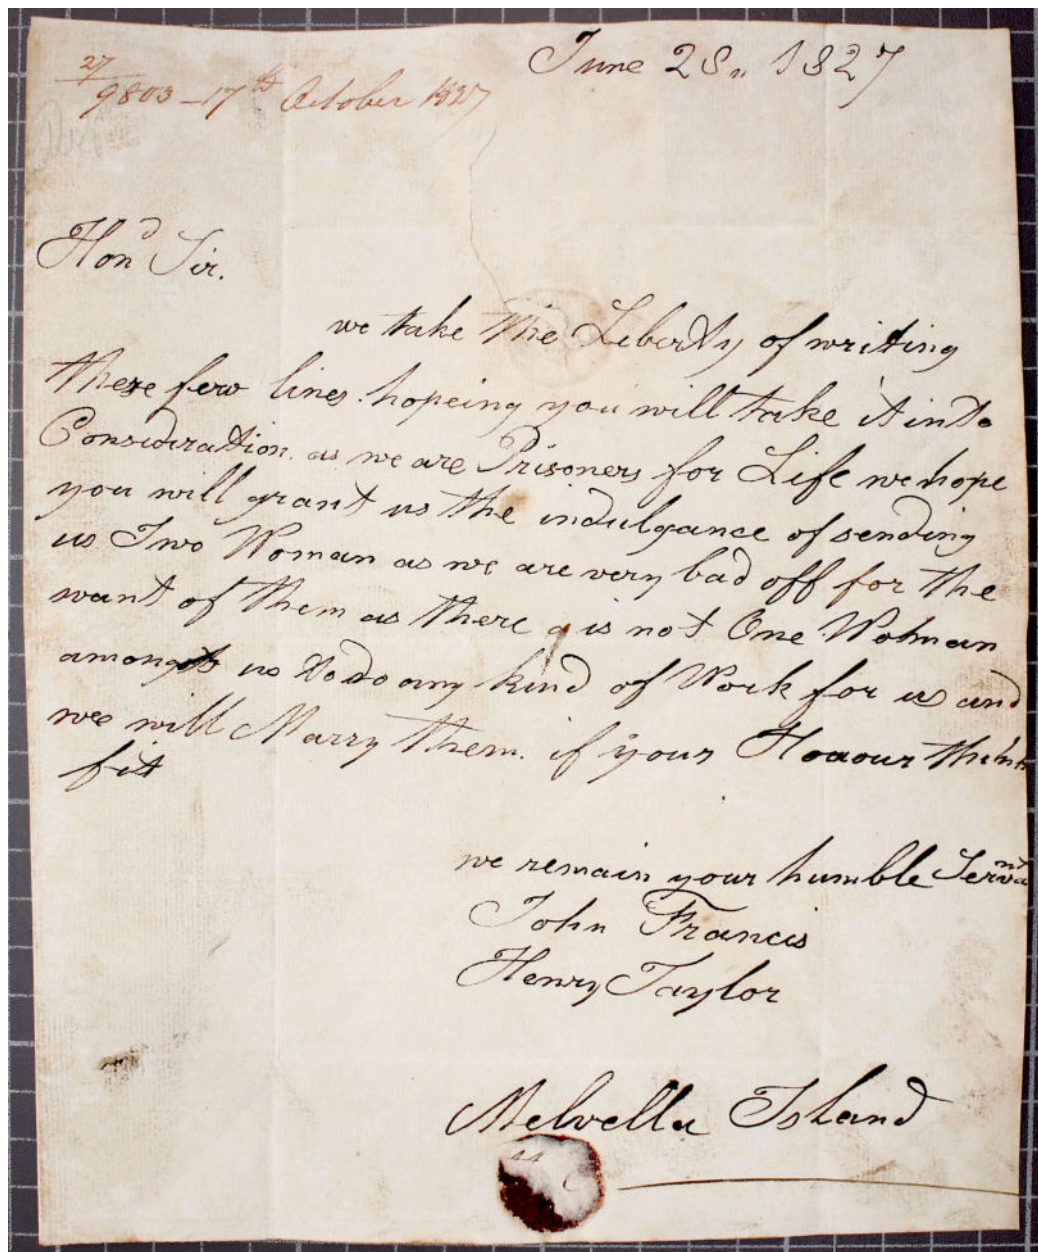 June 28,, 1827
27
9803 - 17th October 1827
Hond Sir.
we take the Liberty of writing
these few lines hopeing you will take it into
Consideration. as we are Prisoners for Life we hope
you will grant us the indulgance of sending
us Two Woman as we are very bad off for the
want of them as there is not One Wohman
amongts us to do any kind of Work for us and
wee will Marry them. if your Honour thinks
fit
we remain your humble Servant
John Francis
Henry Taylor
Melvella Island